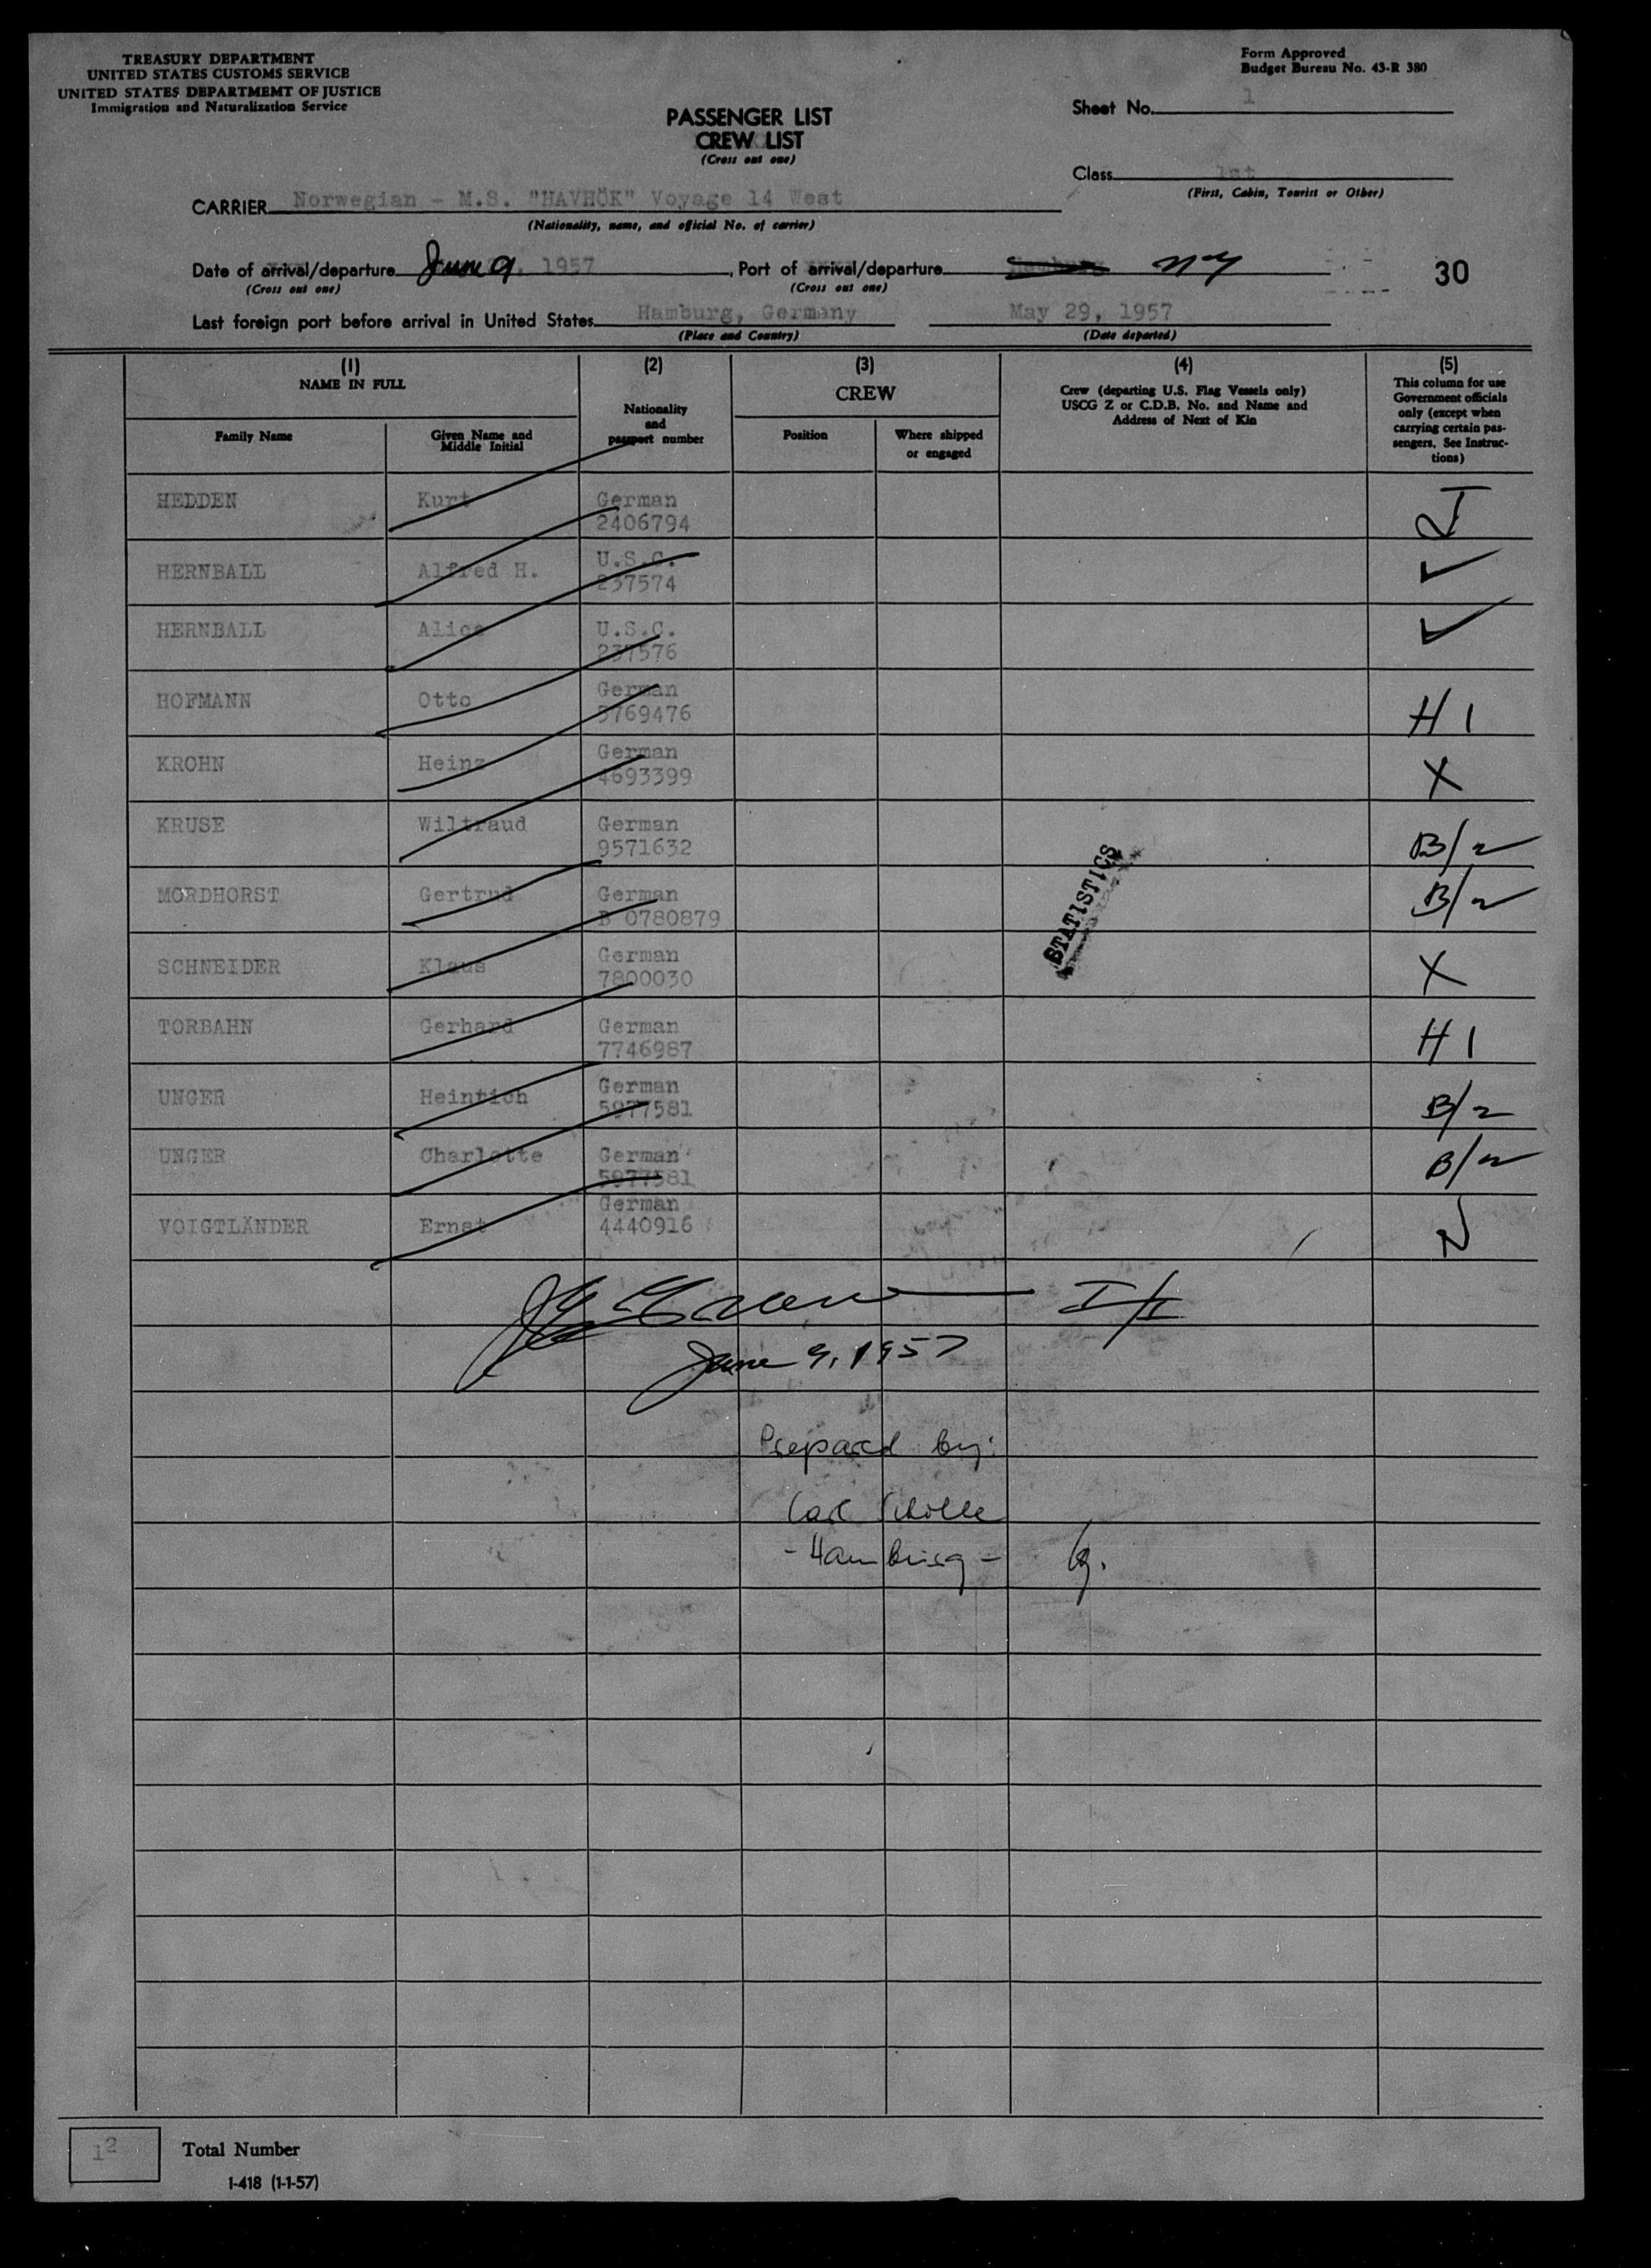 TREASURY DEPARTMENT
UNITED STATES CUSTOMS SERVICE
UNITED STATES DEPARTMEMT OF JUSTICE
Immigration and Naturalization Service
Form Approved
Budget Bureau No. 43-R 380
PASSENGER LIST
CREW LIST
(Cross out one)
Sheet No. 1
Class 1st
(First, Cabin, Tourist or Other)
CARRIER Norwegian - M.S. "HAVHÖK" Voyage 14 West
(Nationality, name, and official No. of carrier)
Date of arrival/departure June 9, 1957, Port of arrival/departure Hamburg NY
(Cross out one) (Cross out one)
30
Last foreign port before arrival in United States Hamburg, Germany May 29, 1957
(Place and Country) (Date departed)
(1) (2) (3) (4) (5)
NAME IN FULL
Family Name
Given Name and
Middle Initial
Nationality
and
passport number
CREW
Position
Where shipped
or engaged
Crew (departing U.S. Flag Vessels only)
USCG Z or C.D.B. No. and Name and
Address of Next of Kin
This column for use
Government officials
only (except when
carrying certain pas-
sengers. See Instruc-
tions)
HEDDEN Kurt German
2406794
HERNBALL Alfred H. U.S.C.
237574
HERNBALL Alice U.S.C.
237576
HOFMANN Otto German H 1
5769476
KROHN Heinz German X
4693399
KRUSE Wiltraud German B/2
9571632
MORDHORST Gertrud German B/2
B 0780879
STATISTICS
SCHNEIDER Klaus German X
7800030
TORBAHN Gerhard German H 1
7746987
UNGER Heintich German B/2
5977581
UNGER Charlotte German B/2
5977581
VOIGTLÄNDER Ernst German
4440916
I/I
June 9, 1957
Prepared by:
Carl Schölle
- Hamburg -
12
Total Number
1-418 (1-1-57)